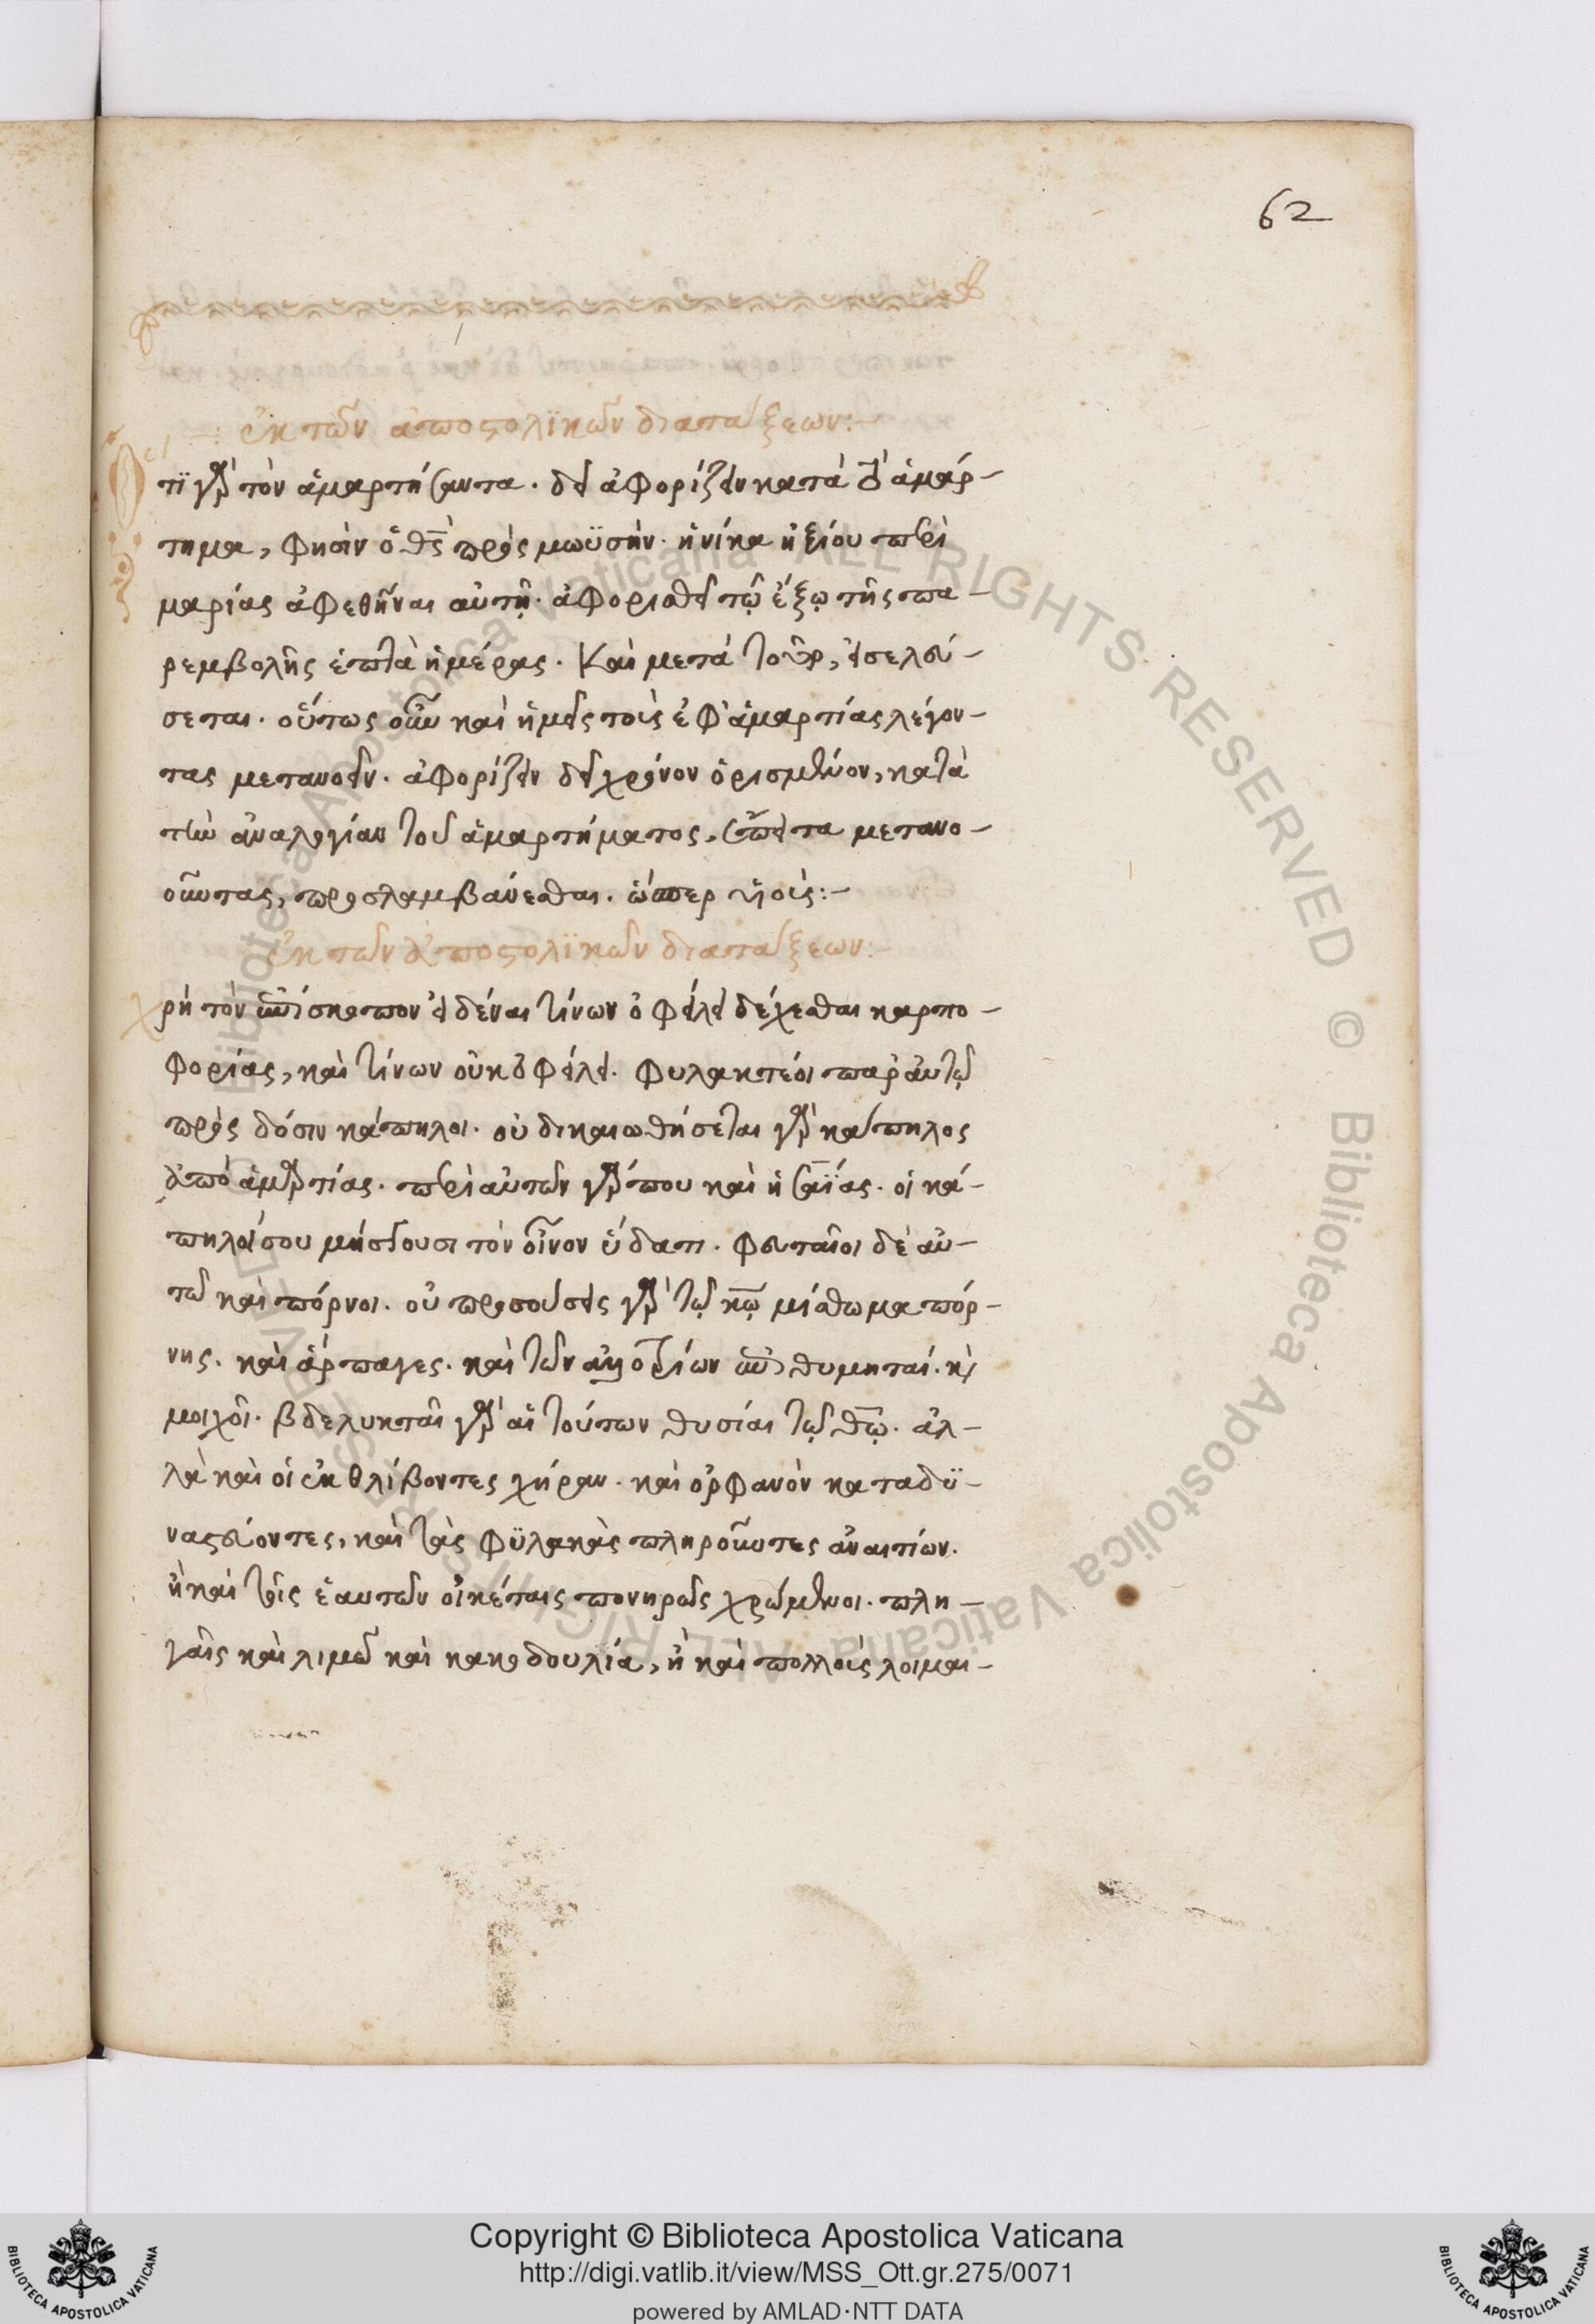 62
ἐκ τῶν ἀποστολϊκῶν διατάξεων:-
Ὅτϊ γὰρ τὸν ἁμαρτήσαντα. δεῖ ἀφορίζειν κατὰ τὸ ἁμάρ-
τημα, φησὶν ὁ θ̅ς̅ πρὸς μωϋσὴν. ἡνίκα ἠξίου περὶ
μαρίας ἀφεθῆναι αὐτῇ. ἀφορισθείτω ἔξω τῆς πα-
ρεμβολῆς ἑπτὰ ἡμέρας. Καὶ μετὰ ταῦτα, εἰσελεύ-
σεται. οὕτως οὖν καὶ ἡμεῖς τοὺς ἐφ' ἁμαρτίας λέγον-
τας μετανοεῖν. ἀφορίζειν δεῖ χρόνον ὁρισμένον, κατὰ
τὴν ἀναλογίαν τοῦ ἁμαρτήματος, ἔπειτα μετανο-
οῦντας, προσλαμβάνεσθαι. ὥσπερ υἱούς:-
ἐκ τῶν ἀποστολϊκῶν διατάξεων:-
χρὴ τὸν ἐπίσκοπον εἰδέναι τίνων ὀφείλει δέχεσθαι καρπο-
φορίας, καὶ τίνων οὐκ ὀφείλει. φυλακτέοι παρ' αὐτῷ
πρὸς δόσιν κάπηλοι. οὐ δικαιωθήσεται γὰρ κάπηλος
ἀπὸ ἁμαρτίας. περὶ αὐτῶν γάρ που καὶ ἡσαΐας. οἱ κά-
πηλοί σου μίσγουσι τὸν οἶνον ὕδατι. φευκταῖοι δὲ αὐ-
τῶ καὶ πόρνοι. οὐ προσοίσεις γὰρ τῷ κ̅ω̅ μίσθωμα πόρ-
νης. καὶ ἅρπαγες. καὶ τῶν ἀλλοτρίων ἐπιθυμηταί. καὶ
μοιχοί. βδελυκταὶ γὰρ αἱ τούτων θυσίαι τῷ θ̅ω̅. ἀλ-
λὰ καὶ οἱ ἐκθλίβοντες χήραν. καὶ ὀρφανὸν καταδϋ-
ναστεύοντες, καὶ τὰς φϋλακὰς πληροῦντες ἀναιτίων.
ἢ καὶ τοῖς ἑαυτῶν οἰκέταις πονηρῶς χρώμενοι. πλη-
γαῖς καὶ λιμῶ καὶ κακοδουλία, ἢ καὶ πολλοὺς λοιμαι-
Copyright © Biblioteca Apostolica Vaticana
http://digi.vatlib.it/view/MSS_Ott.gr.275/0071
powered by AMLAD·NTT DATA
Biblioteca Apostolica Vaticana ALL RIGHTS RESERVED © Biblioteca Apostolica Vaticana ALL RIGHTS RESERVED ©
BIBLIOTECA APOSTOLICA VATICANA
BIBLIOTECA APOSTOLICA VATICANA